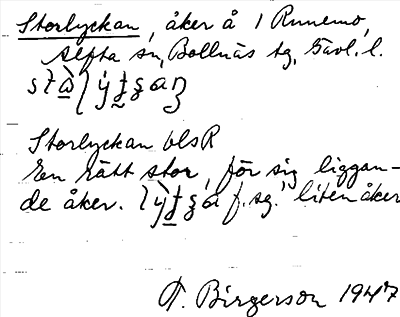 Storlyckan, åker å 1 Runemo,
Alfta sn, Bollnäs tg, Gävl. l.
Storlyckan blsR
En rätt stor, för sig liggan-
de åker. f. sg. 'liten åker
T. Birgerson 1947